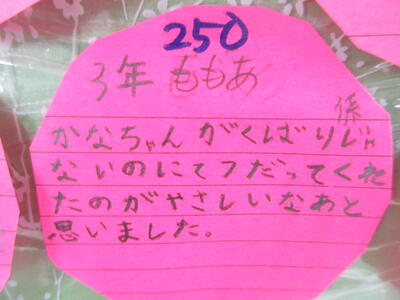 250
3年 ももあ
係
かなちゃんがくばりじゃ
ないのにてつだってくれ
たのがやさしいなあと
思いました。